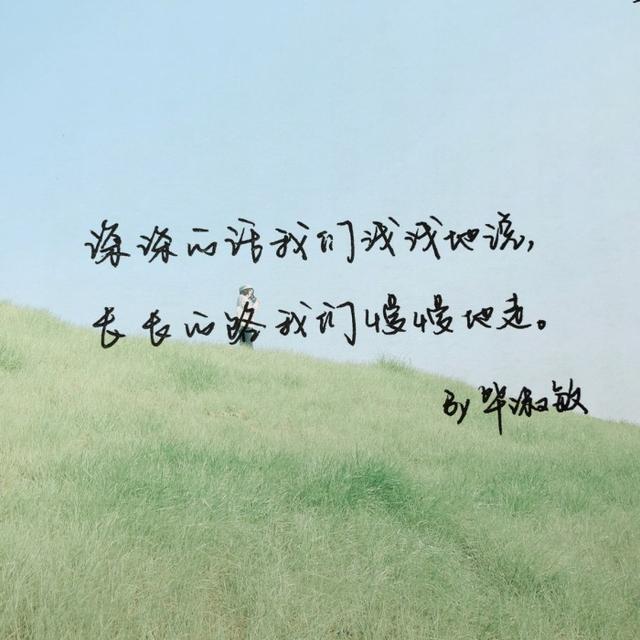 深深的话我们浅浅地说,
长长的路我们慢慢地走。
By 毕淑敏